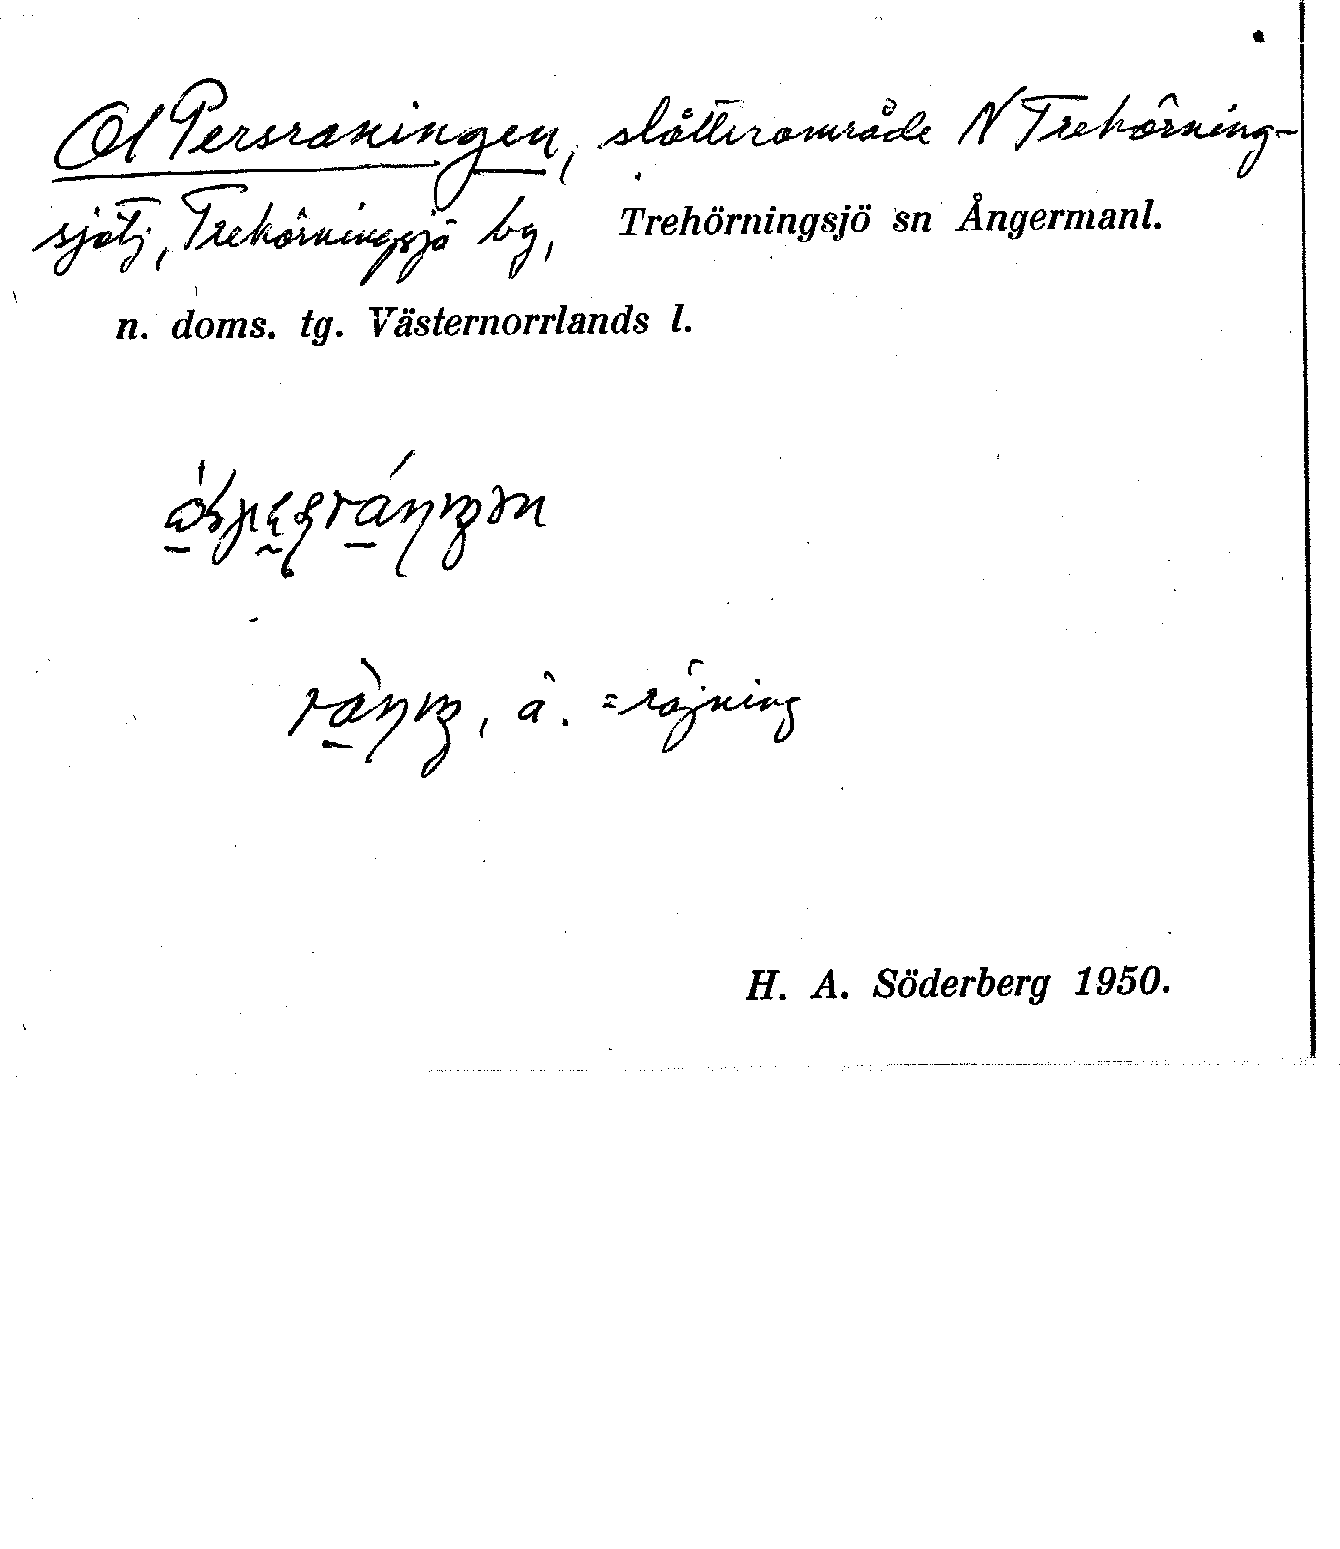 Ol Persraningen, slåtterområde N Trehörning-
sjötj, Trehörningsjö by, Trehörningsjö sn Ångermanl.
n. doms. tg. Västernorrlands l.
, â. = röjning
H. A. Söderberg 1950.